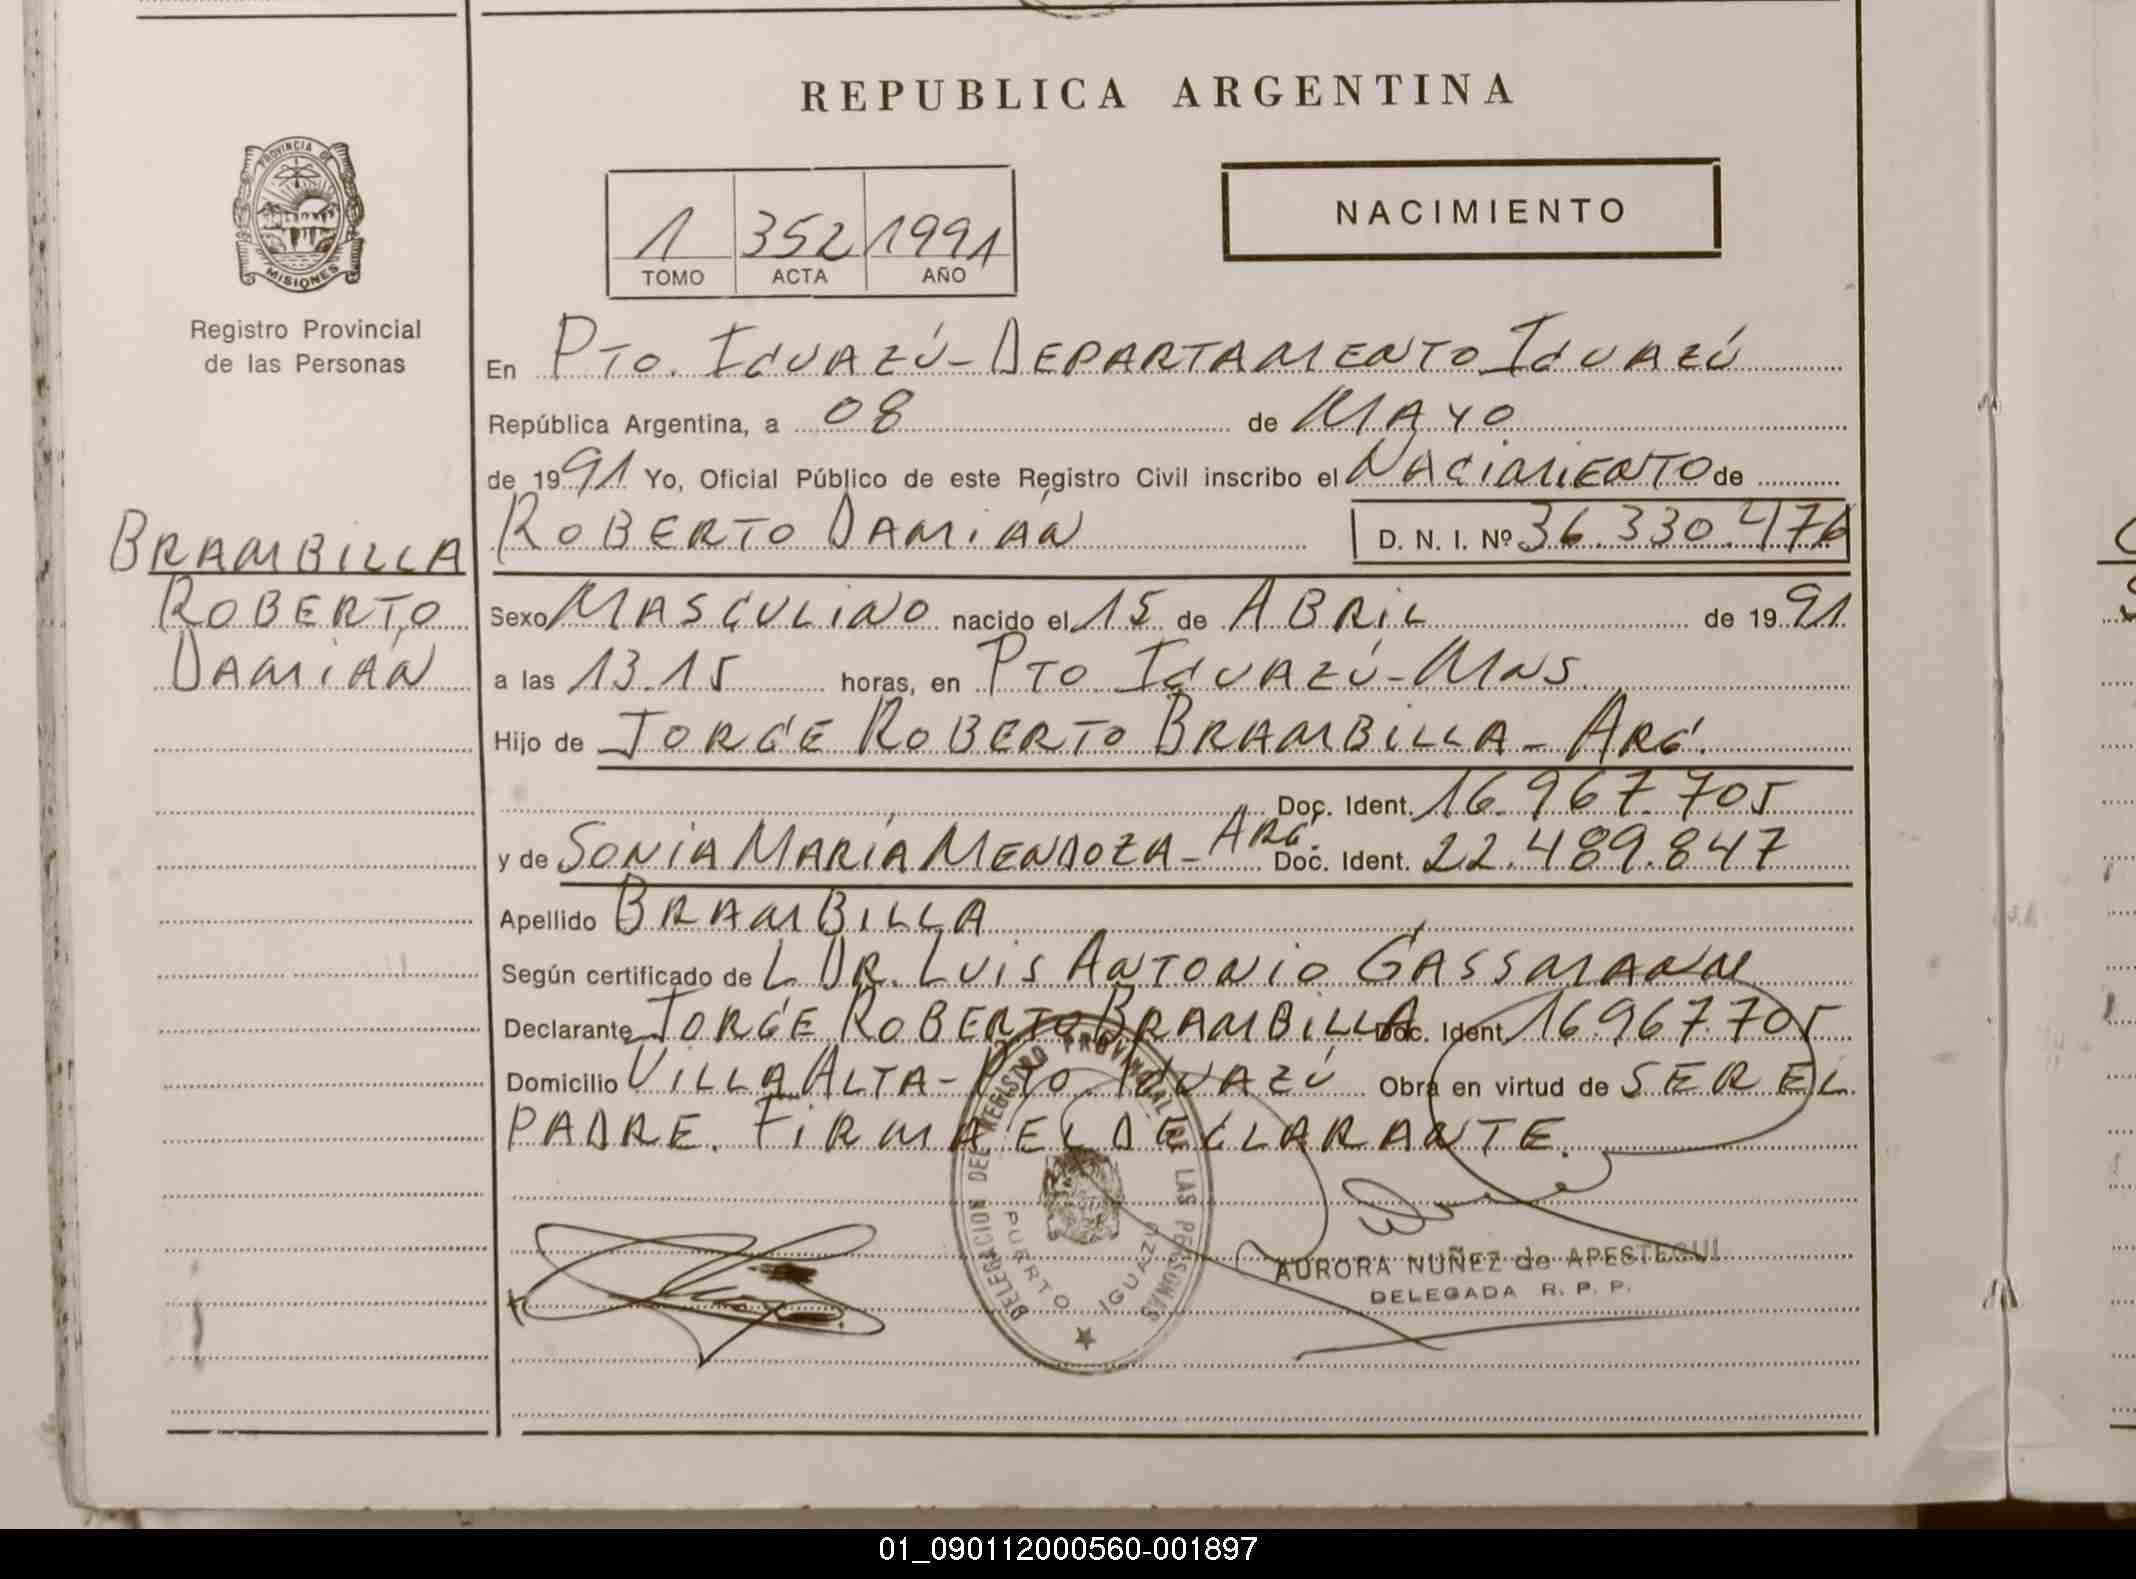 REPUBLICA ARGENTINA
PROVINCIA DE
MISIONES
Registro Provincial
de las Personas
1 352 1991
TOMO ACTA AÑO
NACIMIENTO
En PTO. IGUAZÚ - DEPARTAMENTO IGUAZÚ
República Argentina, a 08 de MAYO
de 1991 Yo, Oficial Público de este Registro Civil inscribo el NACIMIENTO de
BRAMBILLA
ROBERTO
DAMIÁN
ROBERTO DAMIÁN D. N. I. Nº 36.330.476
Sexo MASCULINO nacido el 15 de ABRIL de 1991
a las 13.15 horas, en PTO IGUAZÚ - MNS.
Hijo de JORGE ROBERTO BRAMBILLA - ARG.
Doc. Ident. 16.967.705
y de SONIA MARÍA MENDOZA - ARG. Doc. Ident. 22.489.847
Apellido BRAMBILLA
Según certificado de L DR. LUIS ANTONIO GASSMANN
Declarante JORGE ROBERTO BRAMBILLA Doc. Ident. 16967.705
Domicilio VILLA ALTA - PTO. IGUAZÚ Obra en virtud de SER EL
PADRE. FIRMA EL DECLARANTE.
DELEGACION DEL REGISTRO PROVINCIAL DE LAS PERSONAS
PUERTO IGUAZU
AURORA NUÑEZ de APESTEGUI
DELEGADA R. P. P.
01_090112000560-001897